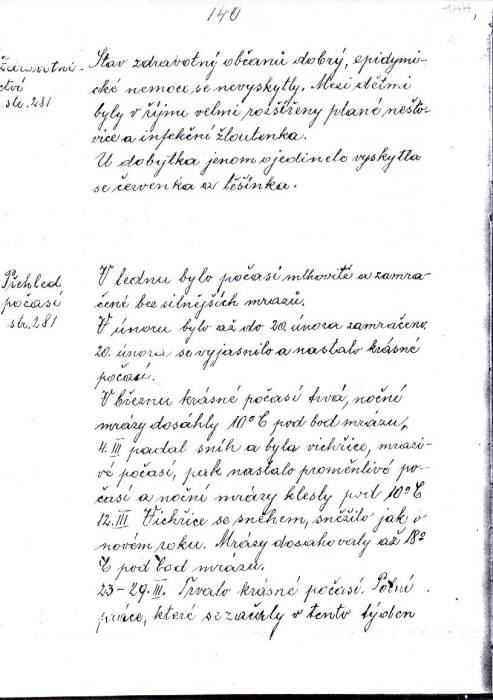 140
144,
Zdravotni-
ctví
str. 281
Stav zdravotný občanů dobrý, epidymi-
cké nemoce se nevyskytly. Mezi dětmi
byly v říjnu velmi rozšířeny plané nešto-
vice a infekční žloutenka.
U dobytka jenom ojediněle vyskytla
se červenka a těšínka.
Přehled
počasí
str. 281
V lednu bylo počasí mlhovité a zamra-
čené bez silnějších mrazů.
V únoru bylo až do 20. února zamračeno.
20. února se vyjasnilo a nastalo krásné
počasí.
V březnu krásné počasí trvá, noční
mrázy dosáhly 10° C pod bod mrázu,
4. III padal sníh a byla vichřice, mrazi-
vé počasí, pak nastalo proměnlivé po-
časí a noční mrázy klesly pod 10° C
12. III Vichřice se sněhem, sněžilo jak o
novém roku. Mrázy dosahovaly až 18°
C pod bod mrázu.
23-29. III. Trvalo krásné počasí. Polní
práce, které se začaly v tento týden